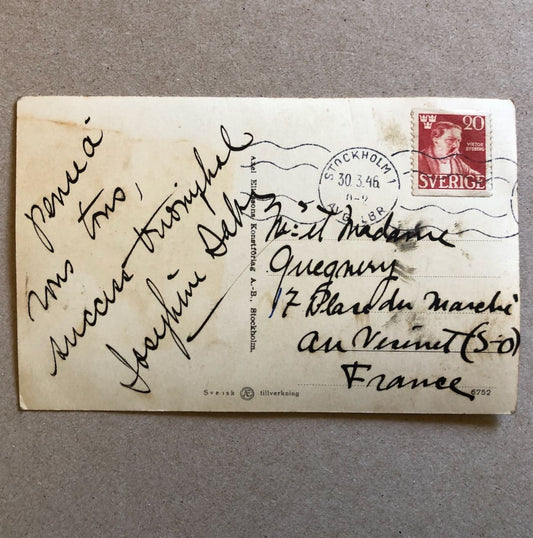 pense à
vous tous,
success triomphal
Josephine Baker
Axel Eliassons Konstförlag A.-B., Stockholm.
STOCKHOLM 1
30.3.46
20
VIKTOR RYDBERG
SVERIGE
Mr et Madame
Quegnery
17 Place du Marché
au Vesinet (S-O)
France
Svensk Æ tillverkning
6752